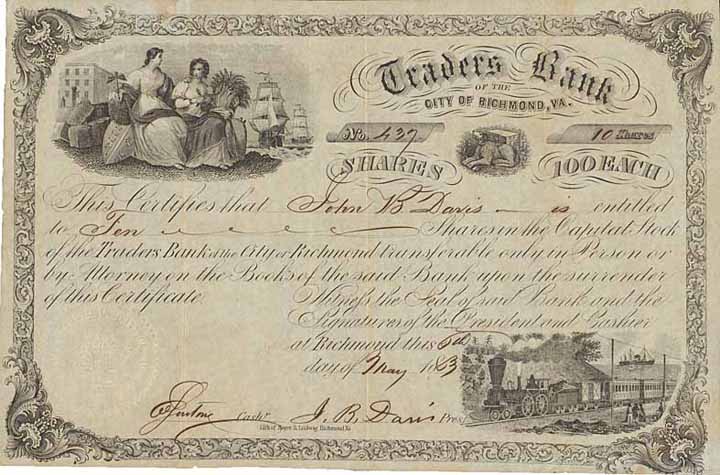 Traders Bank
OF THE
CITY OF RICHMOND, VA.
No. 437
10 Shares
SHARES
100 EACH
This Certifies that John B Davis is entitled
to Ten Shares in the Capital Stock
of the Traders Bank of the City of Richmond transferable only in Person or
by Attorney on the Books of the said Bank upon the surrender
of this Certificate.
Witness the Seal of said Bank and the
Signatures of the President and Cashier
at Richmond this 6th
day of May 1863
Cashr.
J. B. Davis Prest
Lith. of Hoyer & Ludwig Richmond Va